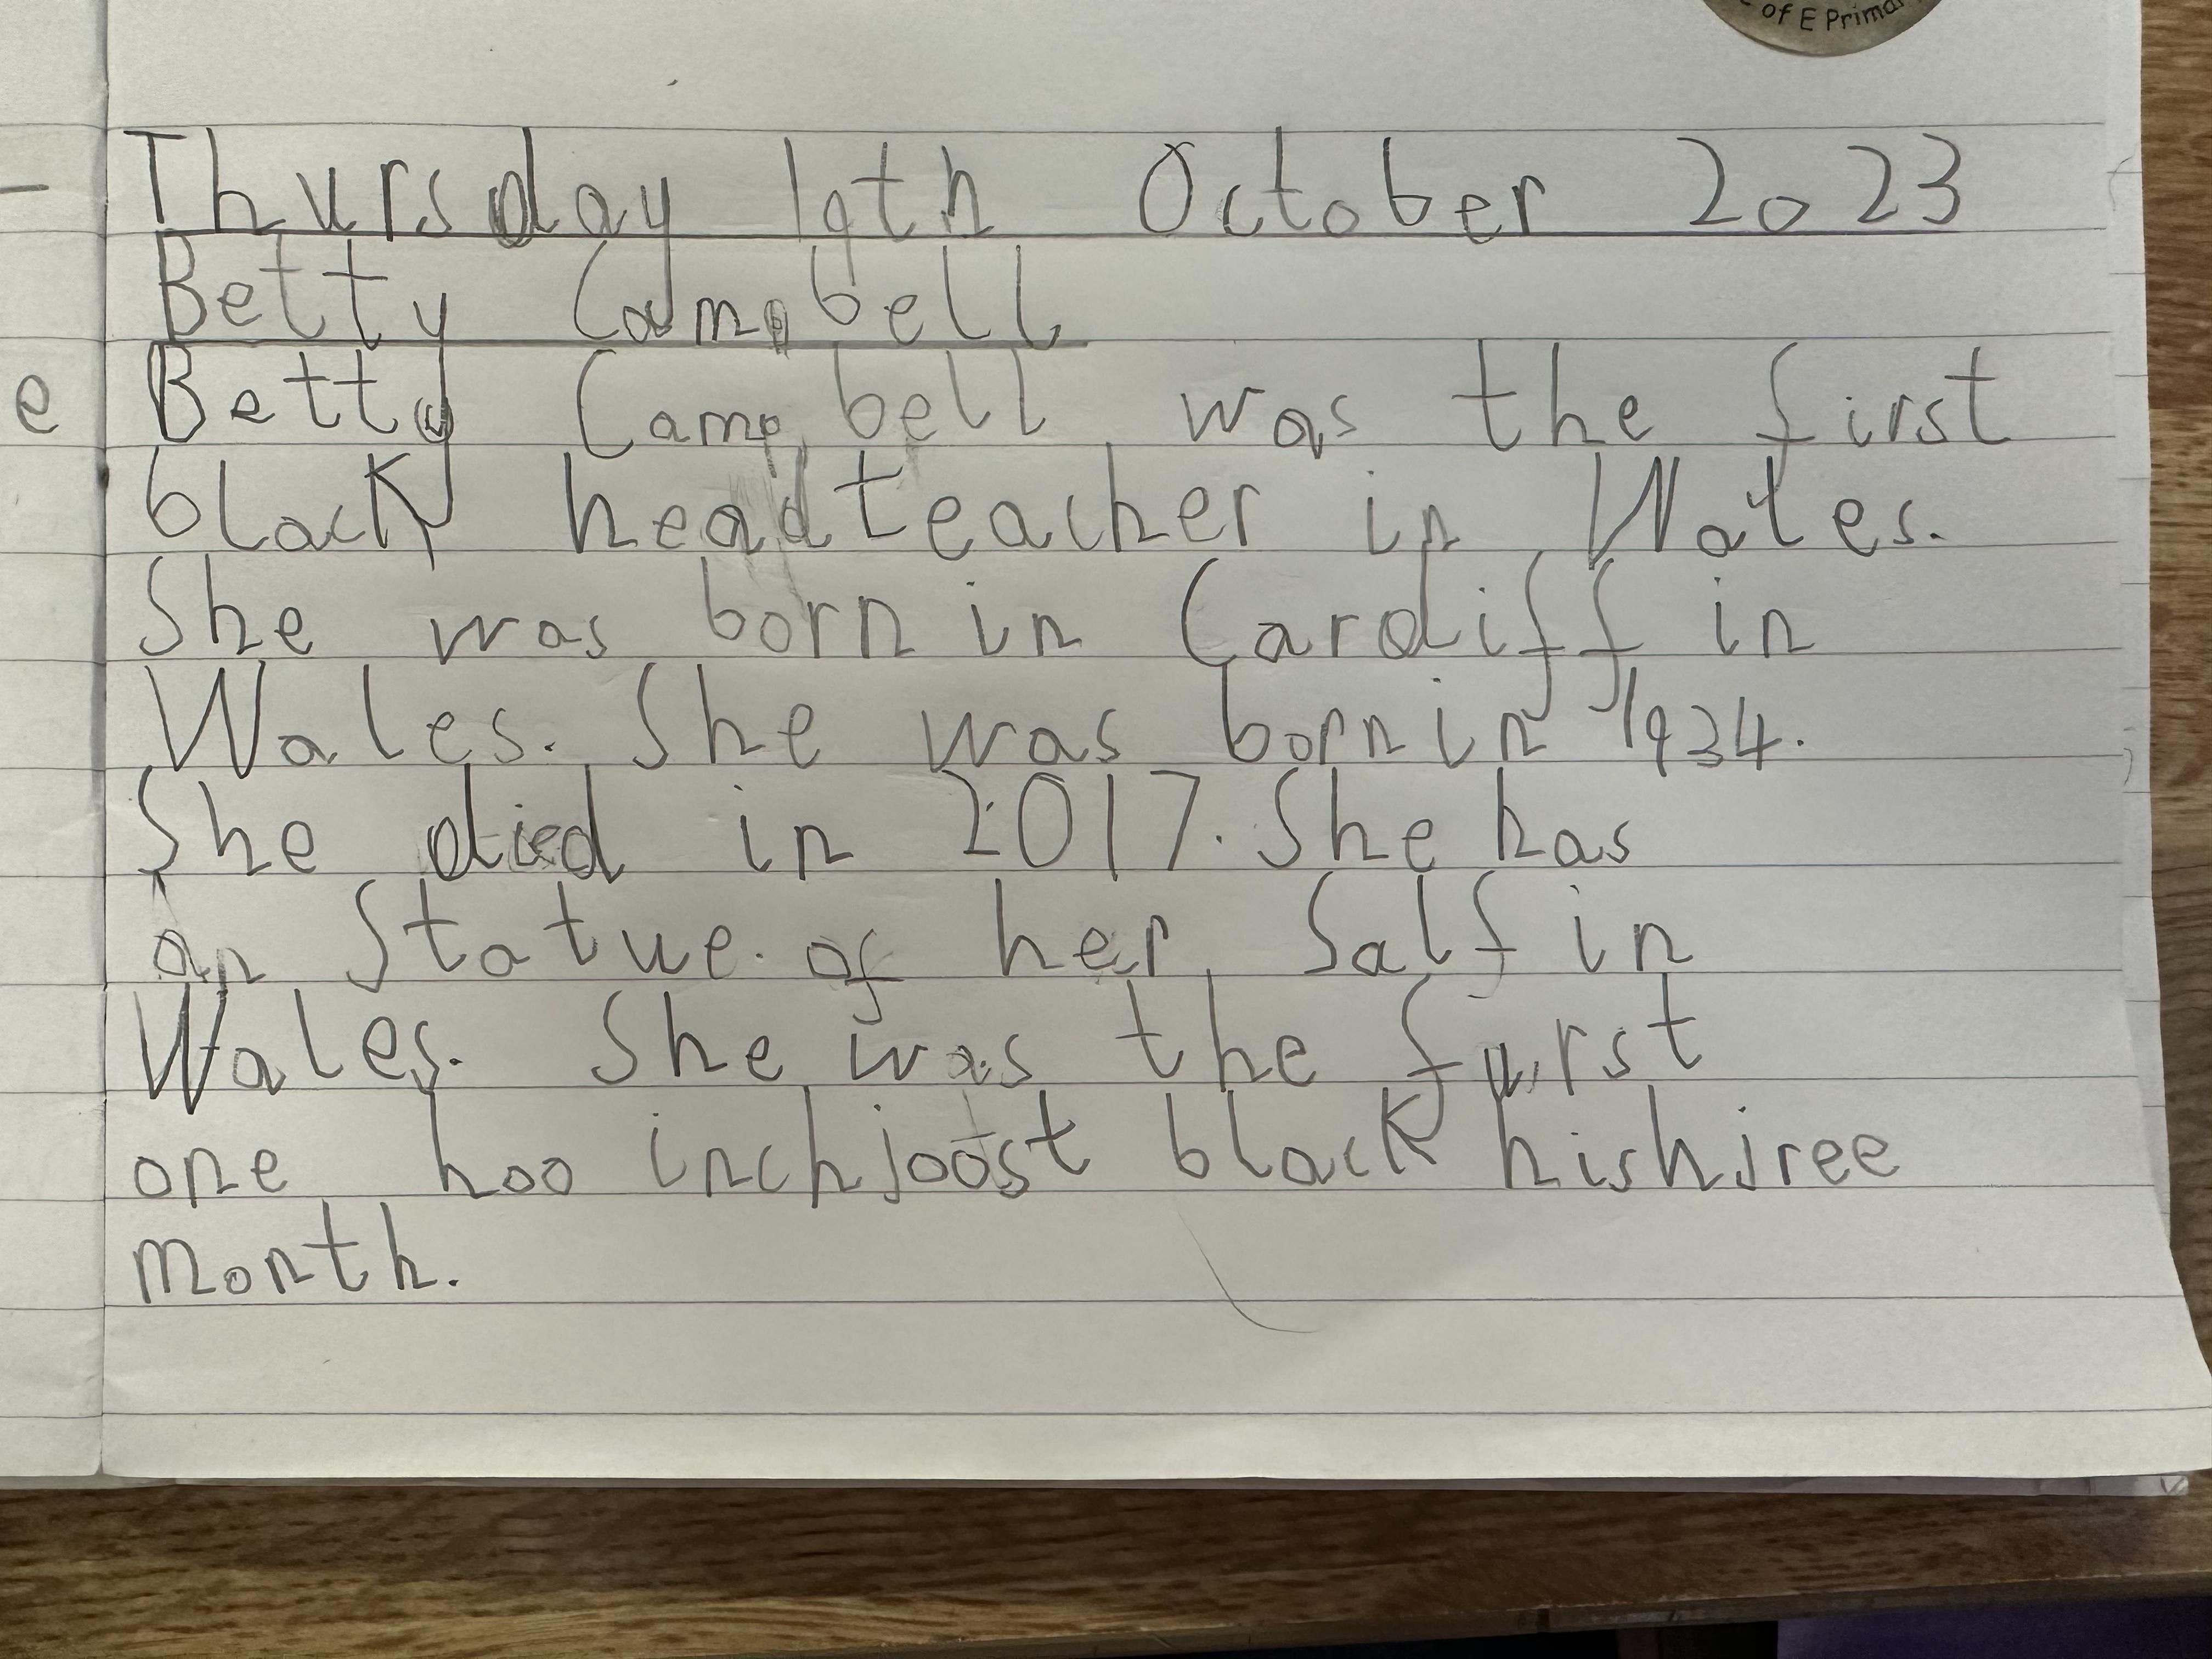 of E Primar
Thursday 19th October 2023
Betty Campbell
e Betty Campbell was the first
black headteacher in Wales.
She was born in Cardiff in
Wales. She was born in 1934.
She died in 2017. She has
an Statue. of her Salf in
Wales. She was the furst
one hoo inchjoost black hishjree
month.